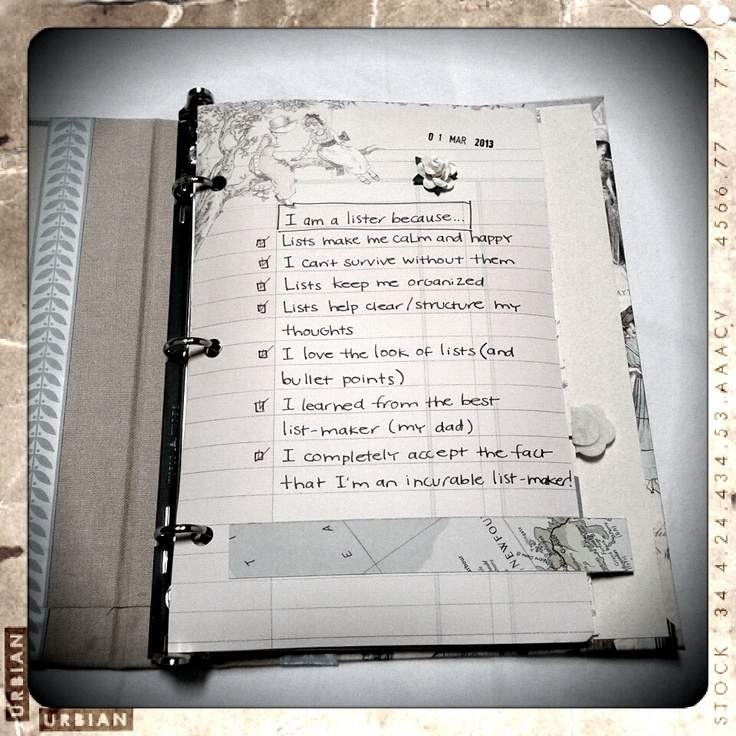 01 MAR 2013
I am a lister because...
Lists make me calm and happy
I cant survive without them
Lists keep me organized
Lists help clear/structure my
thoughts
I love the look of lists (and
bullet points)
I learned from the best
list-maker (my dad)
I completely accept the fact
that I'm an incurable list-maker!
NEWFOU
T E A
STOCK 34 4.24.434.53.AAACV 4566.77 7,7
URBIAN
URBIAN